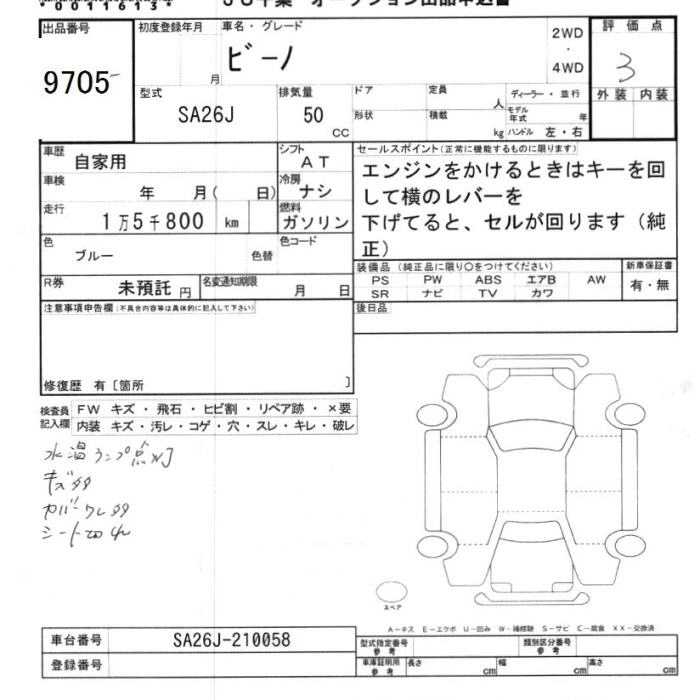 *0011613*
JU千葉 オークション出品申込
出品番号 9705
初度登録年月 月
車名・グレード ビーノ
2WD・4WD
評価点 3
型式 SA26J
排気量 50 CC
ドア
定員 人
ディーラー・並行
形状
積載 kg
モデル年式 年
ハンドル 左・右
外装 内装
車歴 自家用
シフト AT
車検 年 月( 日)
冷房 ナシ
走行 1万5千800 km
燃料 ガソリン
色 ブルー 色替
色コード
R券 未預託 円
名変通知期限 月 日
セールスポイント(正常に機能するものに限ります)
エンジンをかけるときはキーを回
して横のレバーを
下げてると、セルが回ります(純
正)
装備品(純正品に限り○をつけてください)
PS PW ABS エアB AW
SR ナビ TV カワ
新車保証書
有・無
後日品
注意事項申告欄(不具合内容等は具体的に記入して下さい)
修復歴 有〔箇所 〕
検査員記入欄
FW キズ・飛石・ヒビ割・リペア跡・×要
内装 キズ・汚レ・コゲ・穴・スレ・キレ・破レ
水温ランプ点灯
キズ多
カバーワレ多
シート切れ
スペア
A-キズ E-エクボ U-凹み W-補修跡 S-サビ C-腐食 XX-交換済
車台番号 SA26J-210058
型式指定番号 参考
類別区分番号 参考
登録番号
車庫証明用 参考
長さ cm 幅 cm 高さ cm